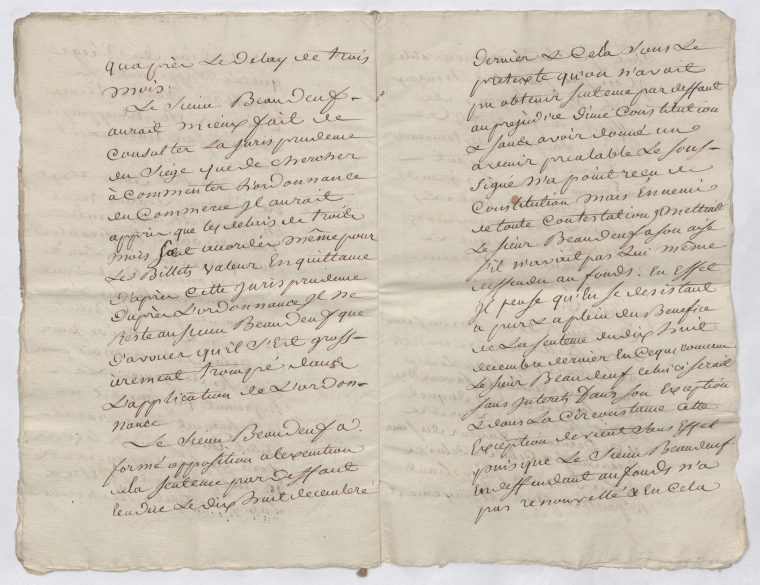 qu'aprèr Le Délay de trois
mois.
Le Sieur Beaudeuf-
aurait mieux fait de
Consulter La Jurisprudence
du Siége que de chercher
à commenter L'ordonnance
du Commerce Il aurait
appris que les delais de trois
mois sont accordés même pour
Les Billets valeur En quittance
D'aprèr Cette Jurisprudence
D'aprèr L'ordonnance Il ne
Reste au Sieur Beaudeuf que
d'avouer qu'il s'Est gross-
ièrement trompé dans
L'application de L'ordon-
nance
Le Sieur Beaudeuf a
formé opposition à lexecution
de la Sentence par deffaut
rendue Le dix huit decembre
dernier & Cela Sous Le
pretexte qu'on n'avait
pu obtenir Sentence par deffaut
au prejudice d'une Constitution
& sans avoir donné un
avenir prealable Le Sous-
Signé n'a point reçu de
Constitution mais Ennemi
de toute Contestation Il mettrait
Le Sieur Beaudeuf a son aise
s'il n'avait pas Lui même
deffendu au fonds. En Effet
Il pense qu'En se desistant
a pur & a plein du Benefice
de La Sentence du dix huit
decembre dernier En ce qui concerne
Le Sieur Beaudeuf celui ci serait
Sans interets Dans son Exception
& dans La Circonstance Cette
Exception devient Sans Effet
puisque Le Sieur Beaudeuf
En deffendant au fonds n'a
pas renouvellé & En Cela